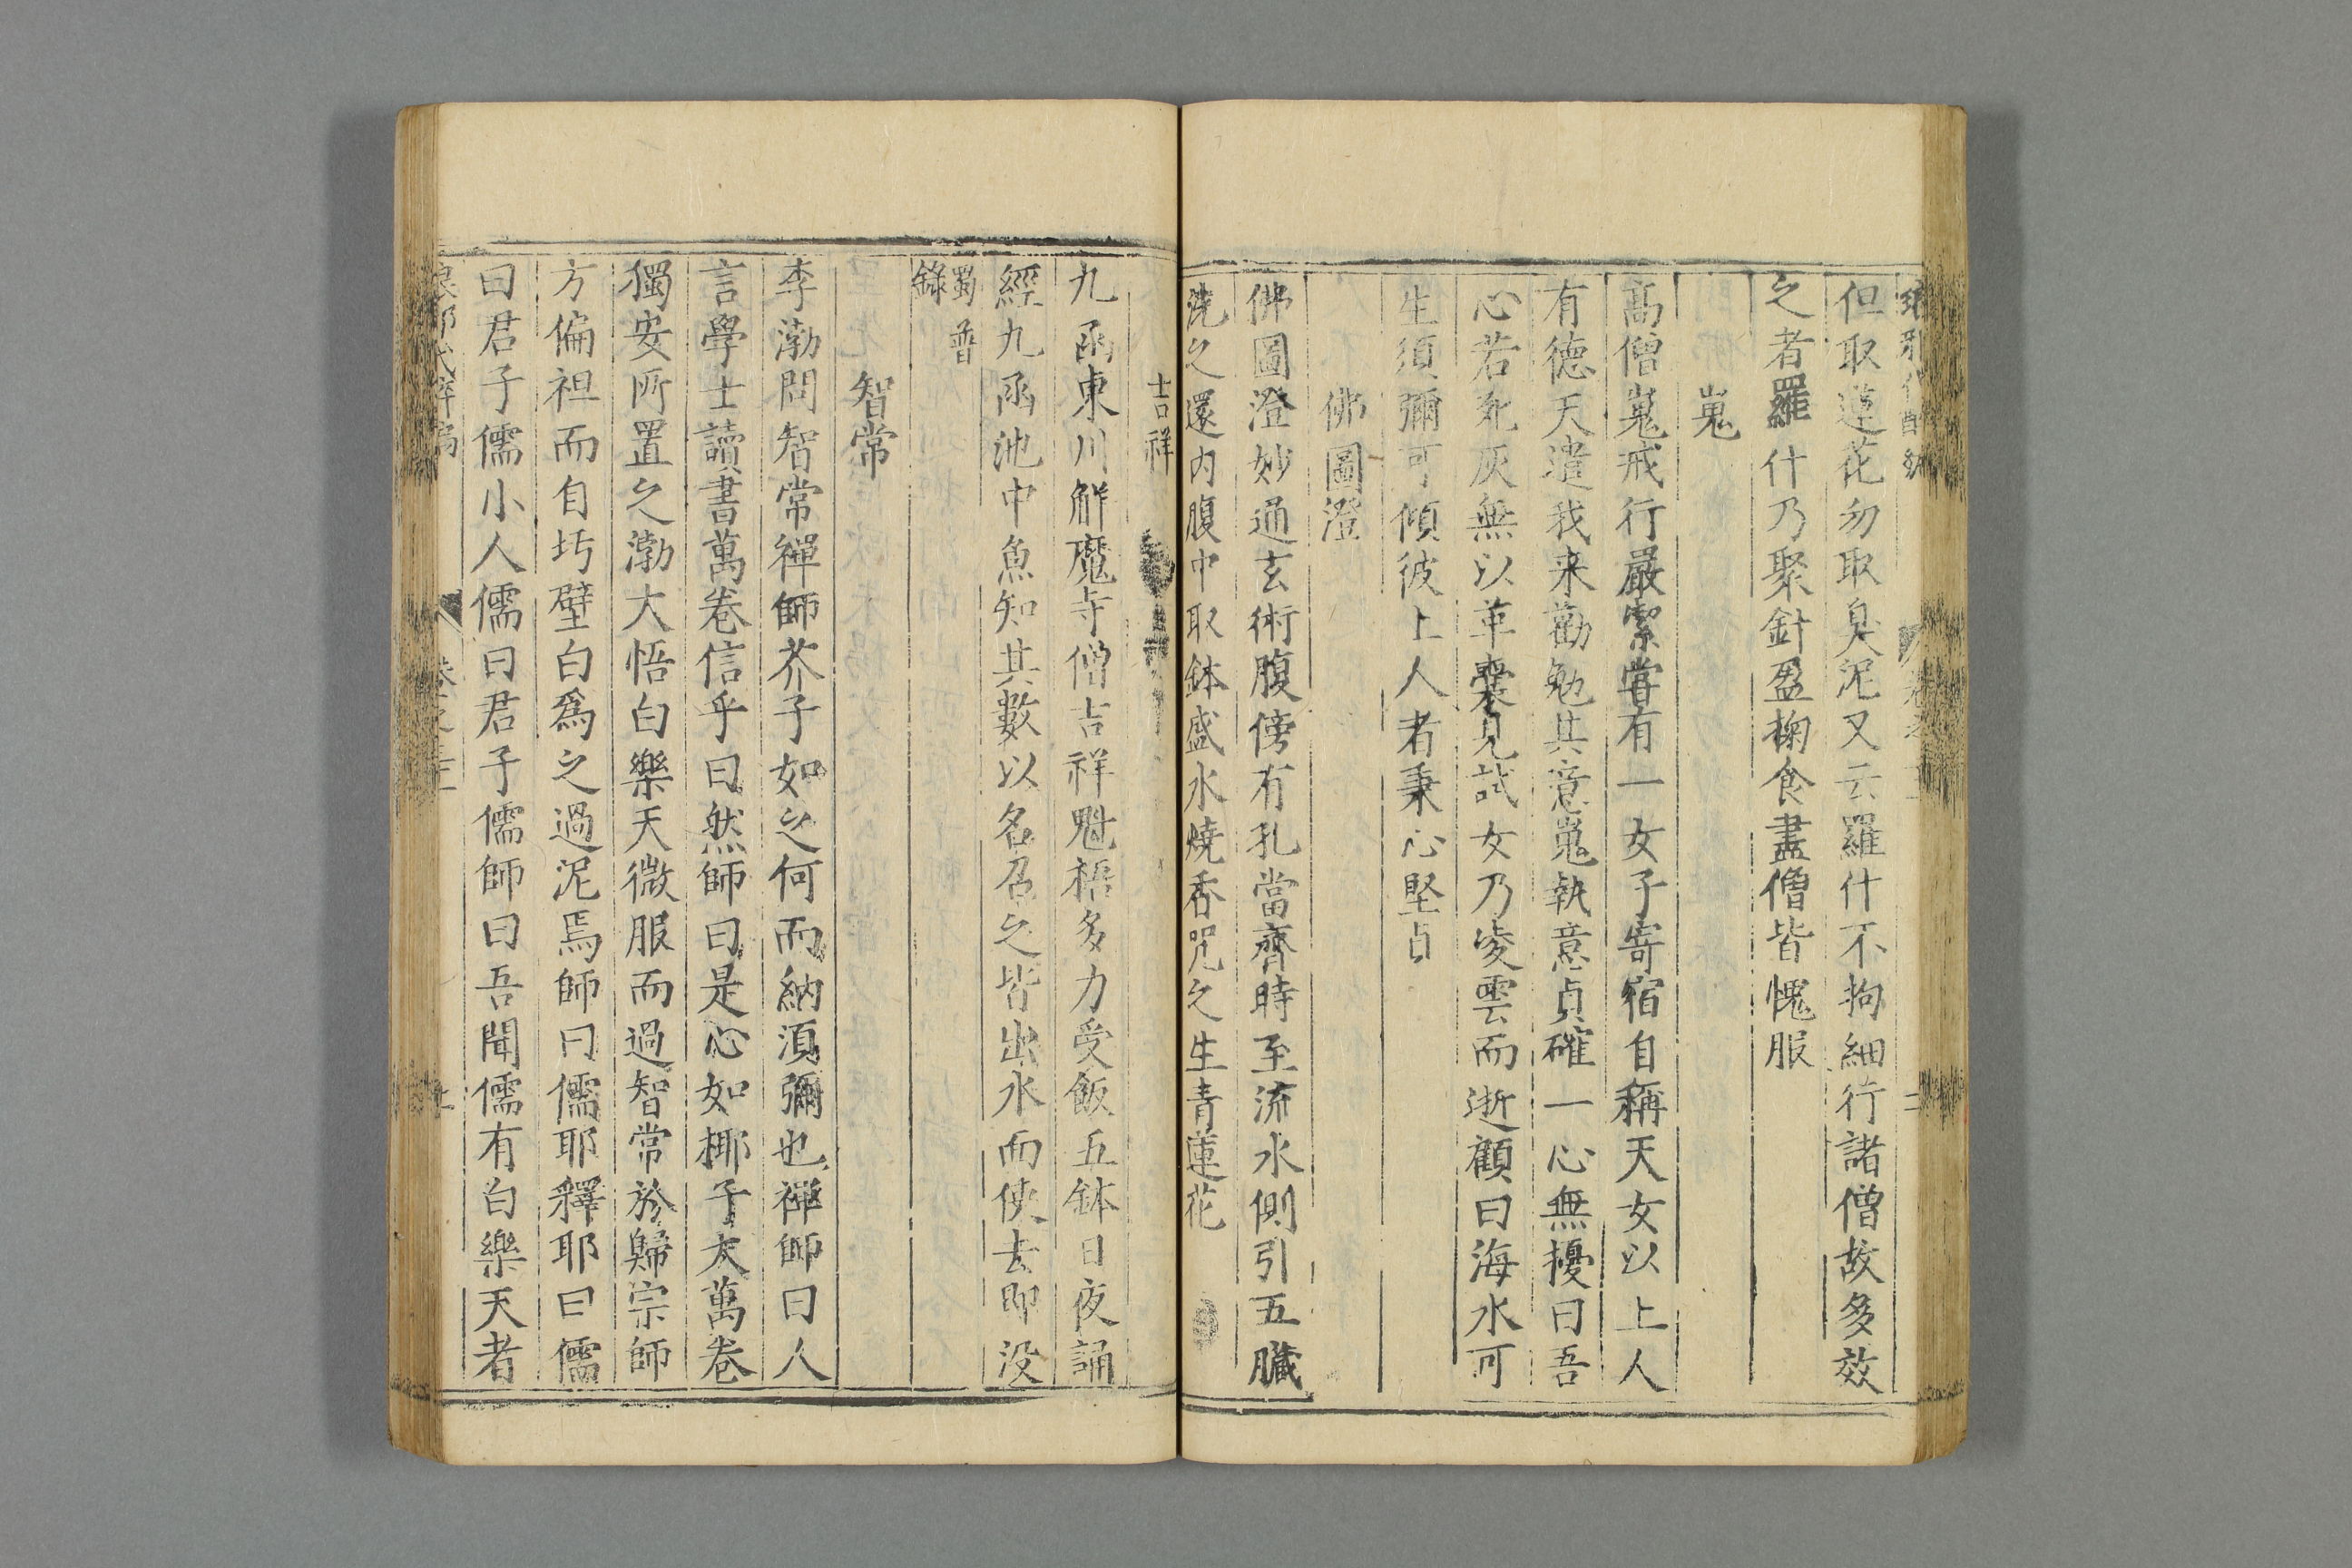 但取蓮花勿取臭泥又云羅什不拘細行諸僧故多效
之者羅什乃聚針盈掬食盡僧皆愧服
嵬
高僧嵬戒行嚴潔嘗有一女子寄宿自稱天女以上人
有德天遣我来勸勉其意嵬執意貞確一心無擾曰吾
心若死灰無以革囊見試女乃凌雲而逝顧曰海水可
生須彌可傾彼上人者秉心堅貞
佛圖澄
佛圖澄妙通玄術腹傍有孔當齊時至流水側引五臟
洗之還内腹中取鉢盛水燒香咒之生青蓮花
吉祥
九函東川解魔寺僧吉祥魁梧多力受飯五鉢日夜誦
經九函池中魚知其數以名召之皆出水而使去即没
蜀普
錄
智常
李渤問智常禪師芥子如之何而納須彌也禪師曰人
言學士讀書萬卷信乎曰然師曰是心如椰子大萬卷
獨安所置之渤大悟白樂天微服而過智常於歸宗師
方偏袒而自圬壁白爲之過泥焉師曰儒耶釋耶曰儒
曰君子儒小人儒曰君子儒師曰吾聞儒有白樂天者